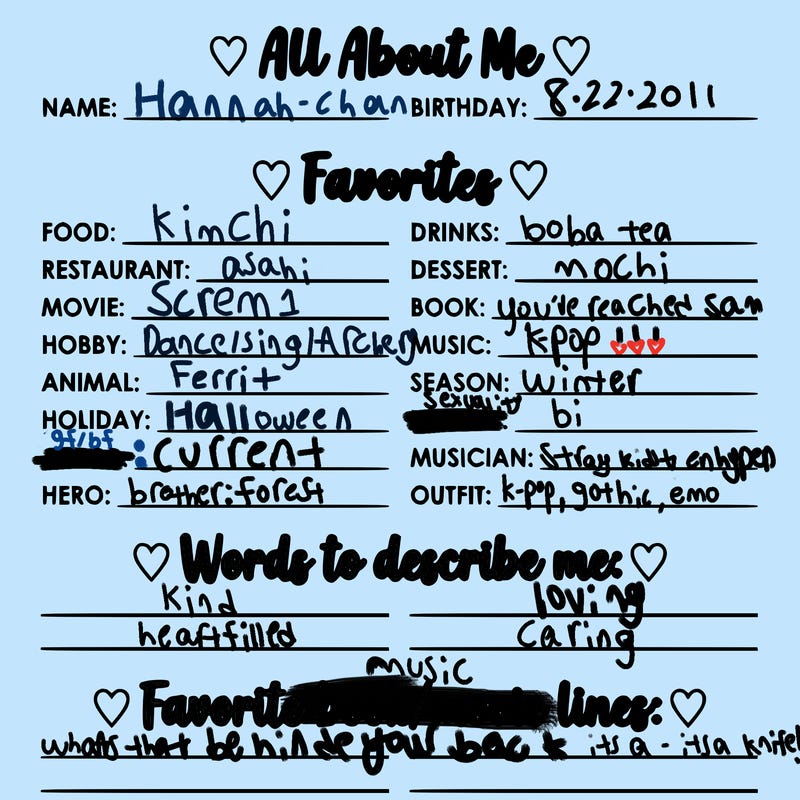 All About Me
NAME: Hannah-chan BIRTHDAY: 8.22.2011
Favorites
FOOD: Kimchi DRINKS: boba tea
RESTAURANT: asahi DESSERT: mochi
MOVIE: Screm 1 BOOK: you've reached sam
HOBBY: Dance/sing/Archery MUSIC: K-pop
ANIMAL: Ferrit SEASON: winter
HOLIDAY: Halloween sexuality bi
gf/bf : current MUSICIAN: Stray kids enhypen
HERO: brother: forest OUTFIT: k-pop, gothic, emo
Words to describe me:
kind loving
heartfilled caring
music
Favorite lines:
whats that behinde your back its a - its a knife!